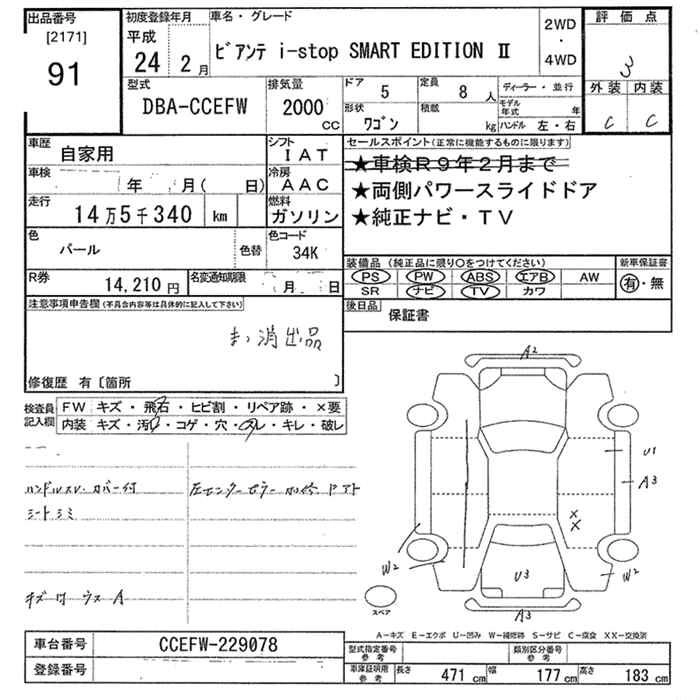 出品番号
[2171]
91
初度登録年月
平成
24 2 月
車名・グレード
ビアンテ i-stop SMART EDITION Ⅱ
2WD
・
4WD
評価点
3
外装 内装
C C
型式
DBA-CCEFW
排気量
2000
CC
ドア 5
定員 8 人
形状
ワゴン
積載
kg
ディーラー・並行
モデル年式 年
ハンドル 左・右
車歴
自家用
シフト
IAT
車検 年 月( 日)
冷房
AAC
走行
14万5千340 km
燃料
ガソリン
色
パール
色替
色コード
34K
R券
14,210 円
名変通知期限
月 日
セールスポイント(正常に機能するものに限ります)
★車検R9年2月まで
★両側パワースライドドア
★純正ナビ・TV
装備品 (純正品に限り○をつけてください)
PS PW ABS エアB AW
SR ナビ TV カワ
新車保証書
有・無
後日品
保証書
注意事項申告欄(不具合内容等は具体的に記入して下さい)
消出品
修復歴 有〔箇所 〕
検査員記入欄
FW キズ・飛石・ヒビ割・リペア跡・×要
内装 キズ・汚れ・コゲ・穴・スレ・キレ・破レ
ハンドルスレ カバー付
シートシミ
A2
U1
A3
×
×
W2
U3
W2
A3
スペア
A-キズ E-エクボ U-凹み W-補修跡 S-サビ C-腐食 XX-交換済
車台番号
CCEFW-229078
登録番号
型式指定番号
参考
類別区分番号
参考
車庫証明用
参考
長さ 471 cm 幅 177 cm 高さ 183 cm